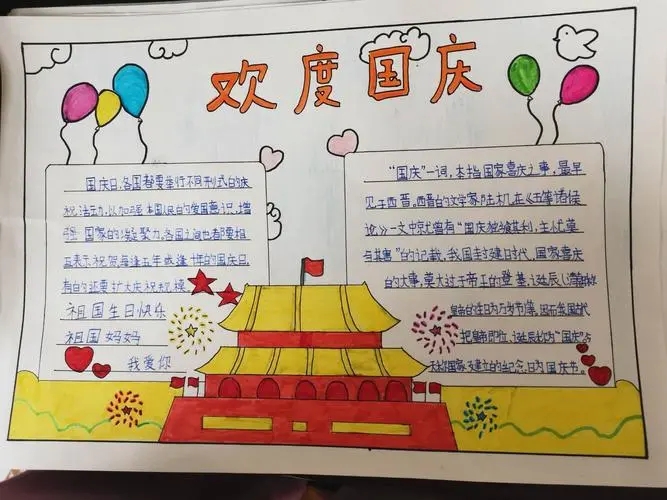 欢度国庆
国庆日,各国都要举行不同形式的庆
祝活动,以加强本国人民的爱国意识,增
强国家的凝聚力。各国之间也都要相
互表示祝贺每逢五年或逢十年的国庆日,
有的还要扩大庆祝规模
祖国生日快乐
祖国妈妈
我爱你
“国庆”一词,本指国家喜庆之事,最早
见于西晋。西晋的文学家陆机在《五等诸侯
论》一文中就曾有“国庆独飨其利,主忧莫
与其害”的记载,我国封建时代,国家喜庆
的大事,莫大过于帝王的登基、诞辰
皇帝的生日为万岁节等,因而我国古代
把皇帝即位、诞辰称为“国庆”
国家建立的纪念日为国庆节。